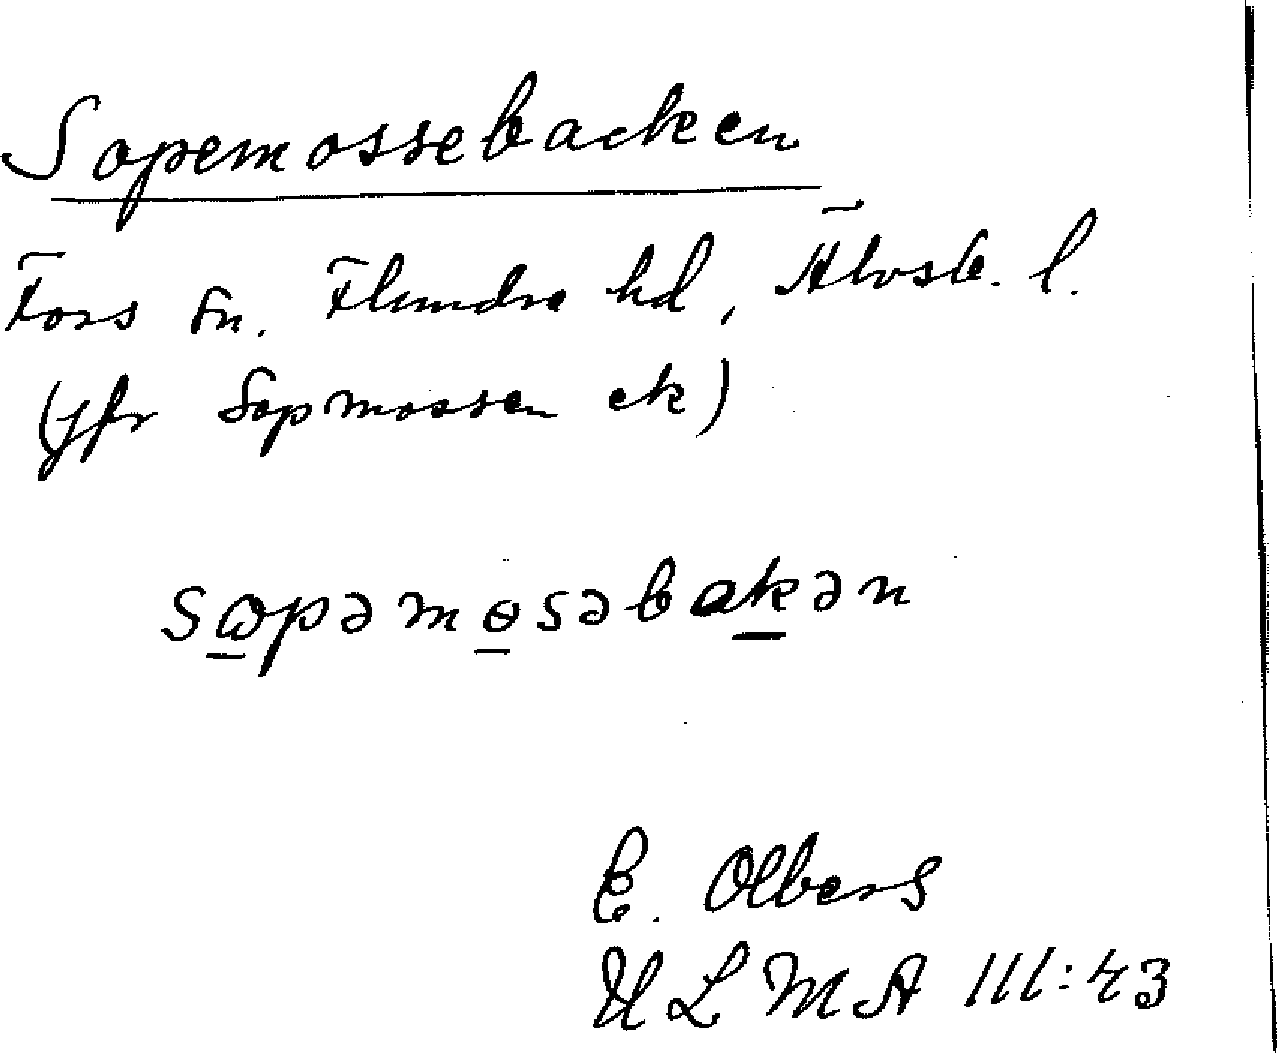 Sopemossebacken
Fors sn. Flundre hd, Älvsb. l.
(jfr Sopmossen ek)
sɷpəmɵsəbakən
E. Olbers
ULMA III:43